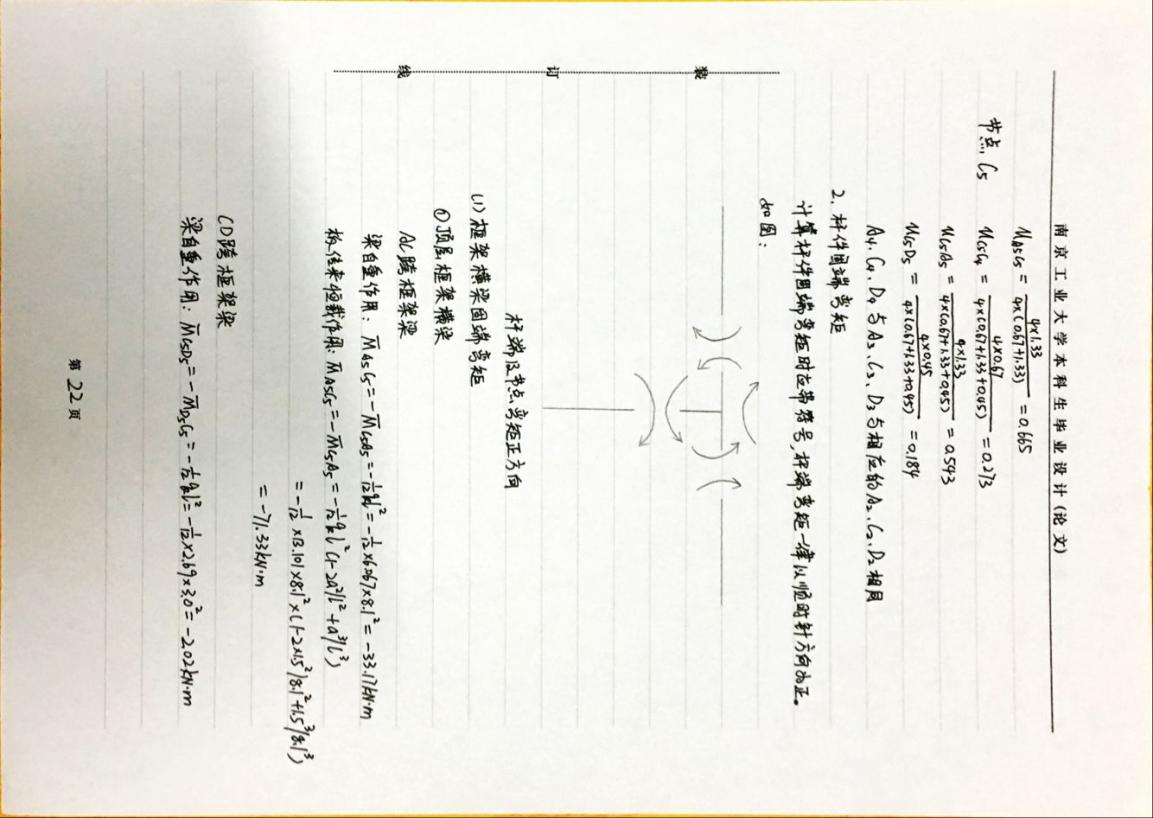 南京工业大学本科生毕业设计(论文)
μA5C5 = 4×1.33 / 4×(0.67+1.33) = 0.665
节点 C5 μC5C4 = 4×0.67 / 4×(0.67+1.33+0.45) = 0.273
μC5A5 = 4×1.33 / 4×(0.67+1.33+0.45) = 0.543
μC5D5 = 4×0.45 / 4×(0.67+1.33+0.45) = 0.184
A4、C4、D4 与 A3、C3、D3 与相应的 A2、C2、D2 相同
2. 杆件固端弯矩
计算杆件固端弯矩时应带符号,杆端弯矩一律以顺时针方向为正。
如图:
杆端及节点弯矩正方向
(1) 框架横梁固端弯矩
①顶层框架横梁
AC跨框架梁
梁自重作用: M̅A5C5 = -M̅C5A5 = -1/12 ql² = -1/12×6.067×8.1² = -33.17kN·m
板传来恒载作用: M̅A5C5 = -M̅C5A5 = -1/12 ql²(1-2a²/l²+a³/l³)
= -1/12×13.101×8.1²×(1-2×1.5²/8.1²+1.5³/8.1³)
= -71.33kN·m
CD跨框架梁
梁自重作用: M̅C5D5 = -M̅D5C5 = -1/12 ql² = -1/12×2.69×3.0² = -2.02kN·m
第 22 页
装
订
线